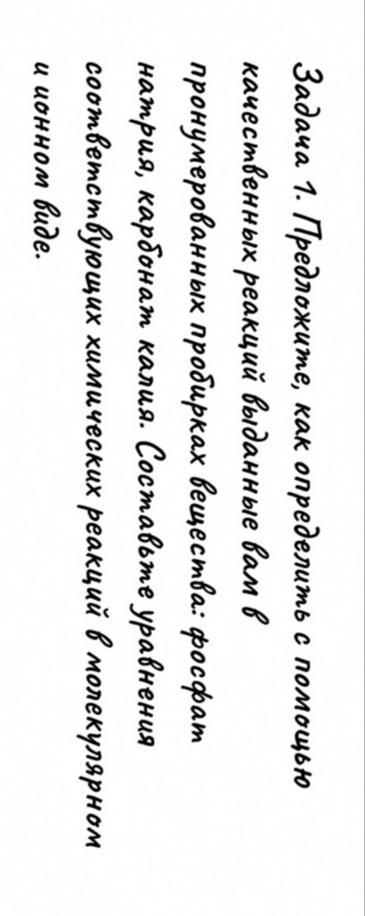 Задача 1. Предложите, как определить с помощью
качественных реакций выданные вам в
пронумерованных пробирках вещества: фосфат
натрия, карбонат калия. Составьте уравнения
соответствующих химических реакций в молекулярном
и ионном виде.